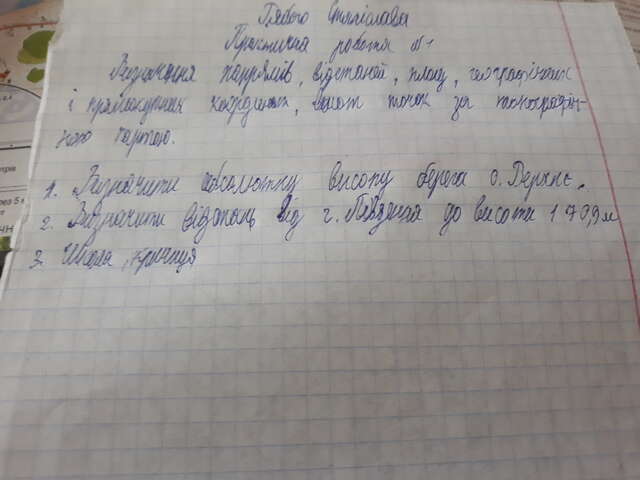 Грабого Станіслава
Практична робота №1
Визначення напрямів, відстаней, площ, географічних
і прямокутних координат, висот точок за топографіч-
ною картою.
1. Визначити абсолютну висоту берега о. Верхнє.
2. Визначити відстань від г. Південна до висоти 170,9 м
3. Школа, криниця